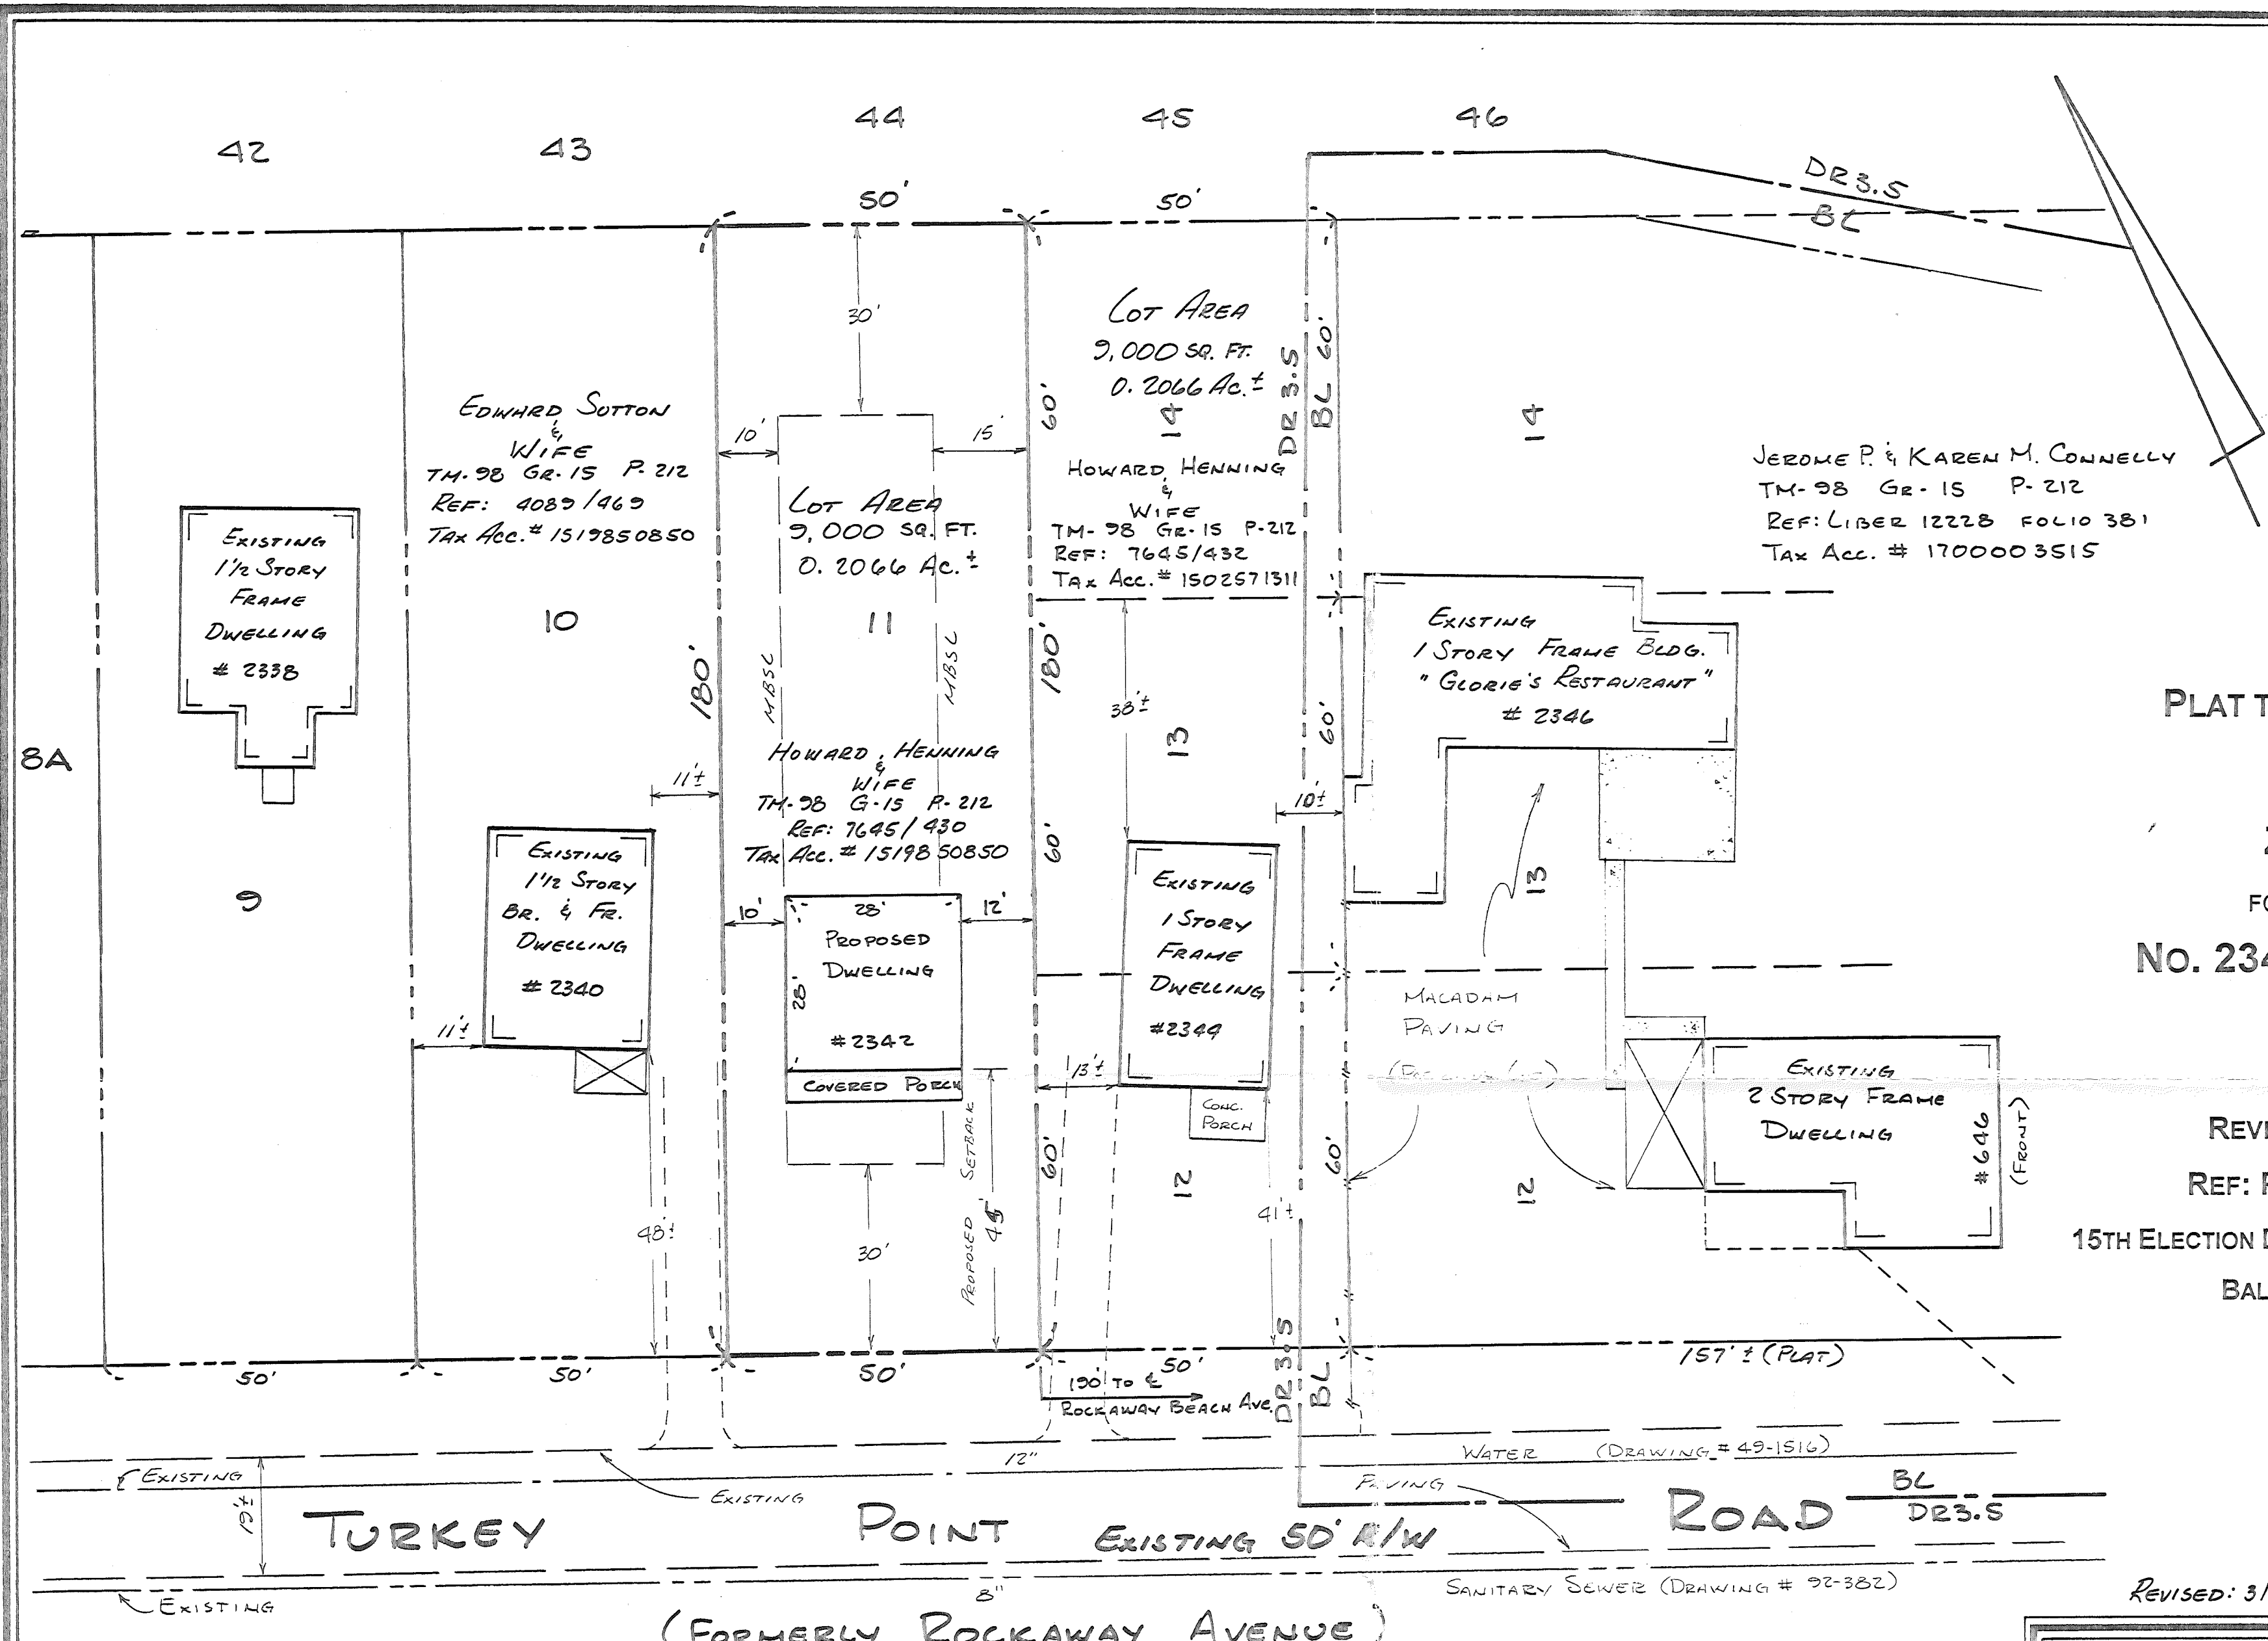 42
43
44
45
46
50'
50'
DR3.5
BL
30'
LOT AREA
9,000 SQ. FT.
0.2066 AC.±
14
DR 3.5
BL
60'
60'
14
EDWARD SUTTON
&
WIFE
TM-98 GR-15 P-212
REF: 4089/469
TAX ACC.# 1519850850
10'
15'
LOT AREA
9,000 SQ. FT.
0.2066 AC.±
HOWARD HENNING
&
WIFE
TM-98 GR-15 P-212
REF: 7645/432
TAX ACC.# 1502571311
JEROME P. & KAREN M. CONNELLY
TM-98 GR-15 P-212
REF: LIBER 12228 FOLIO 381
TAX ACC. # 1700003515
EXISTING
1 1/2 STORY
FRAME
DWELLING
# 2338
10
11
180'
MBSL
MBSL
180'
38'±
13
60'
EXISTING
1 STORY FRAME BLDG.
"GLORIE'S RESTAURANT"
# 2346
PLAT T
8A
11'±
HOWARD HENNING
&
WIFE
TM-98 G-15 P-212
REF: 7645/430
TAX ACC.# 1519850850
60'
10'±
9
EXISTING
1 1/2 STORY
BR. & FR.
DWELLING
# 2340
11'±
10'
28'
12'
PROPOSED
DWELLING
28'
#2342
COVERED PORCH
EXISTING
1 STORY
FRAME
DWELLING
#2344
13'±
CONC.
PORCH
13
FO
NO. 234
MACADAM
PAVING
EXISTING
2 STORY FRAME
DWELLING
#646
(FRONT)
REVI
REF: P
15TH ELECTION D
BAL
48'±
30'
PROPOSED SETBACK
45'
60'
12
41'±
60'
12
50'
50'
50'
50'
157'± (PLAT)
190' TO ℄
ROCKAWAY BEACH AVE.
DR 3.5
BL
12"
WATER (DRAWING # 49-1516)
EXISTING
19'±
EXISTING
PAVING
BL
DR3.5
TURKEY POINT EXISTING 50' R/W ROAD
EXISTING
8"
SANITARY SEWER (DRAWING # 92-382)
REVISED: 3/
(FORMERLY ROCKAWAY AVENUE)